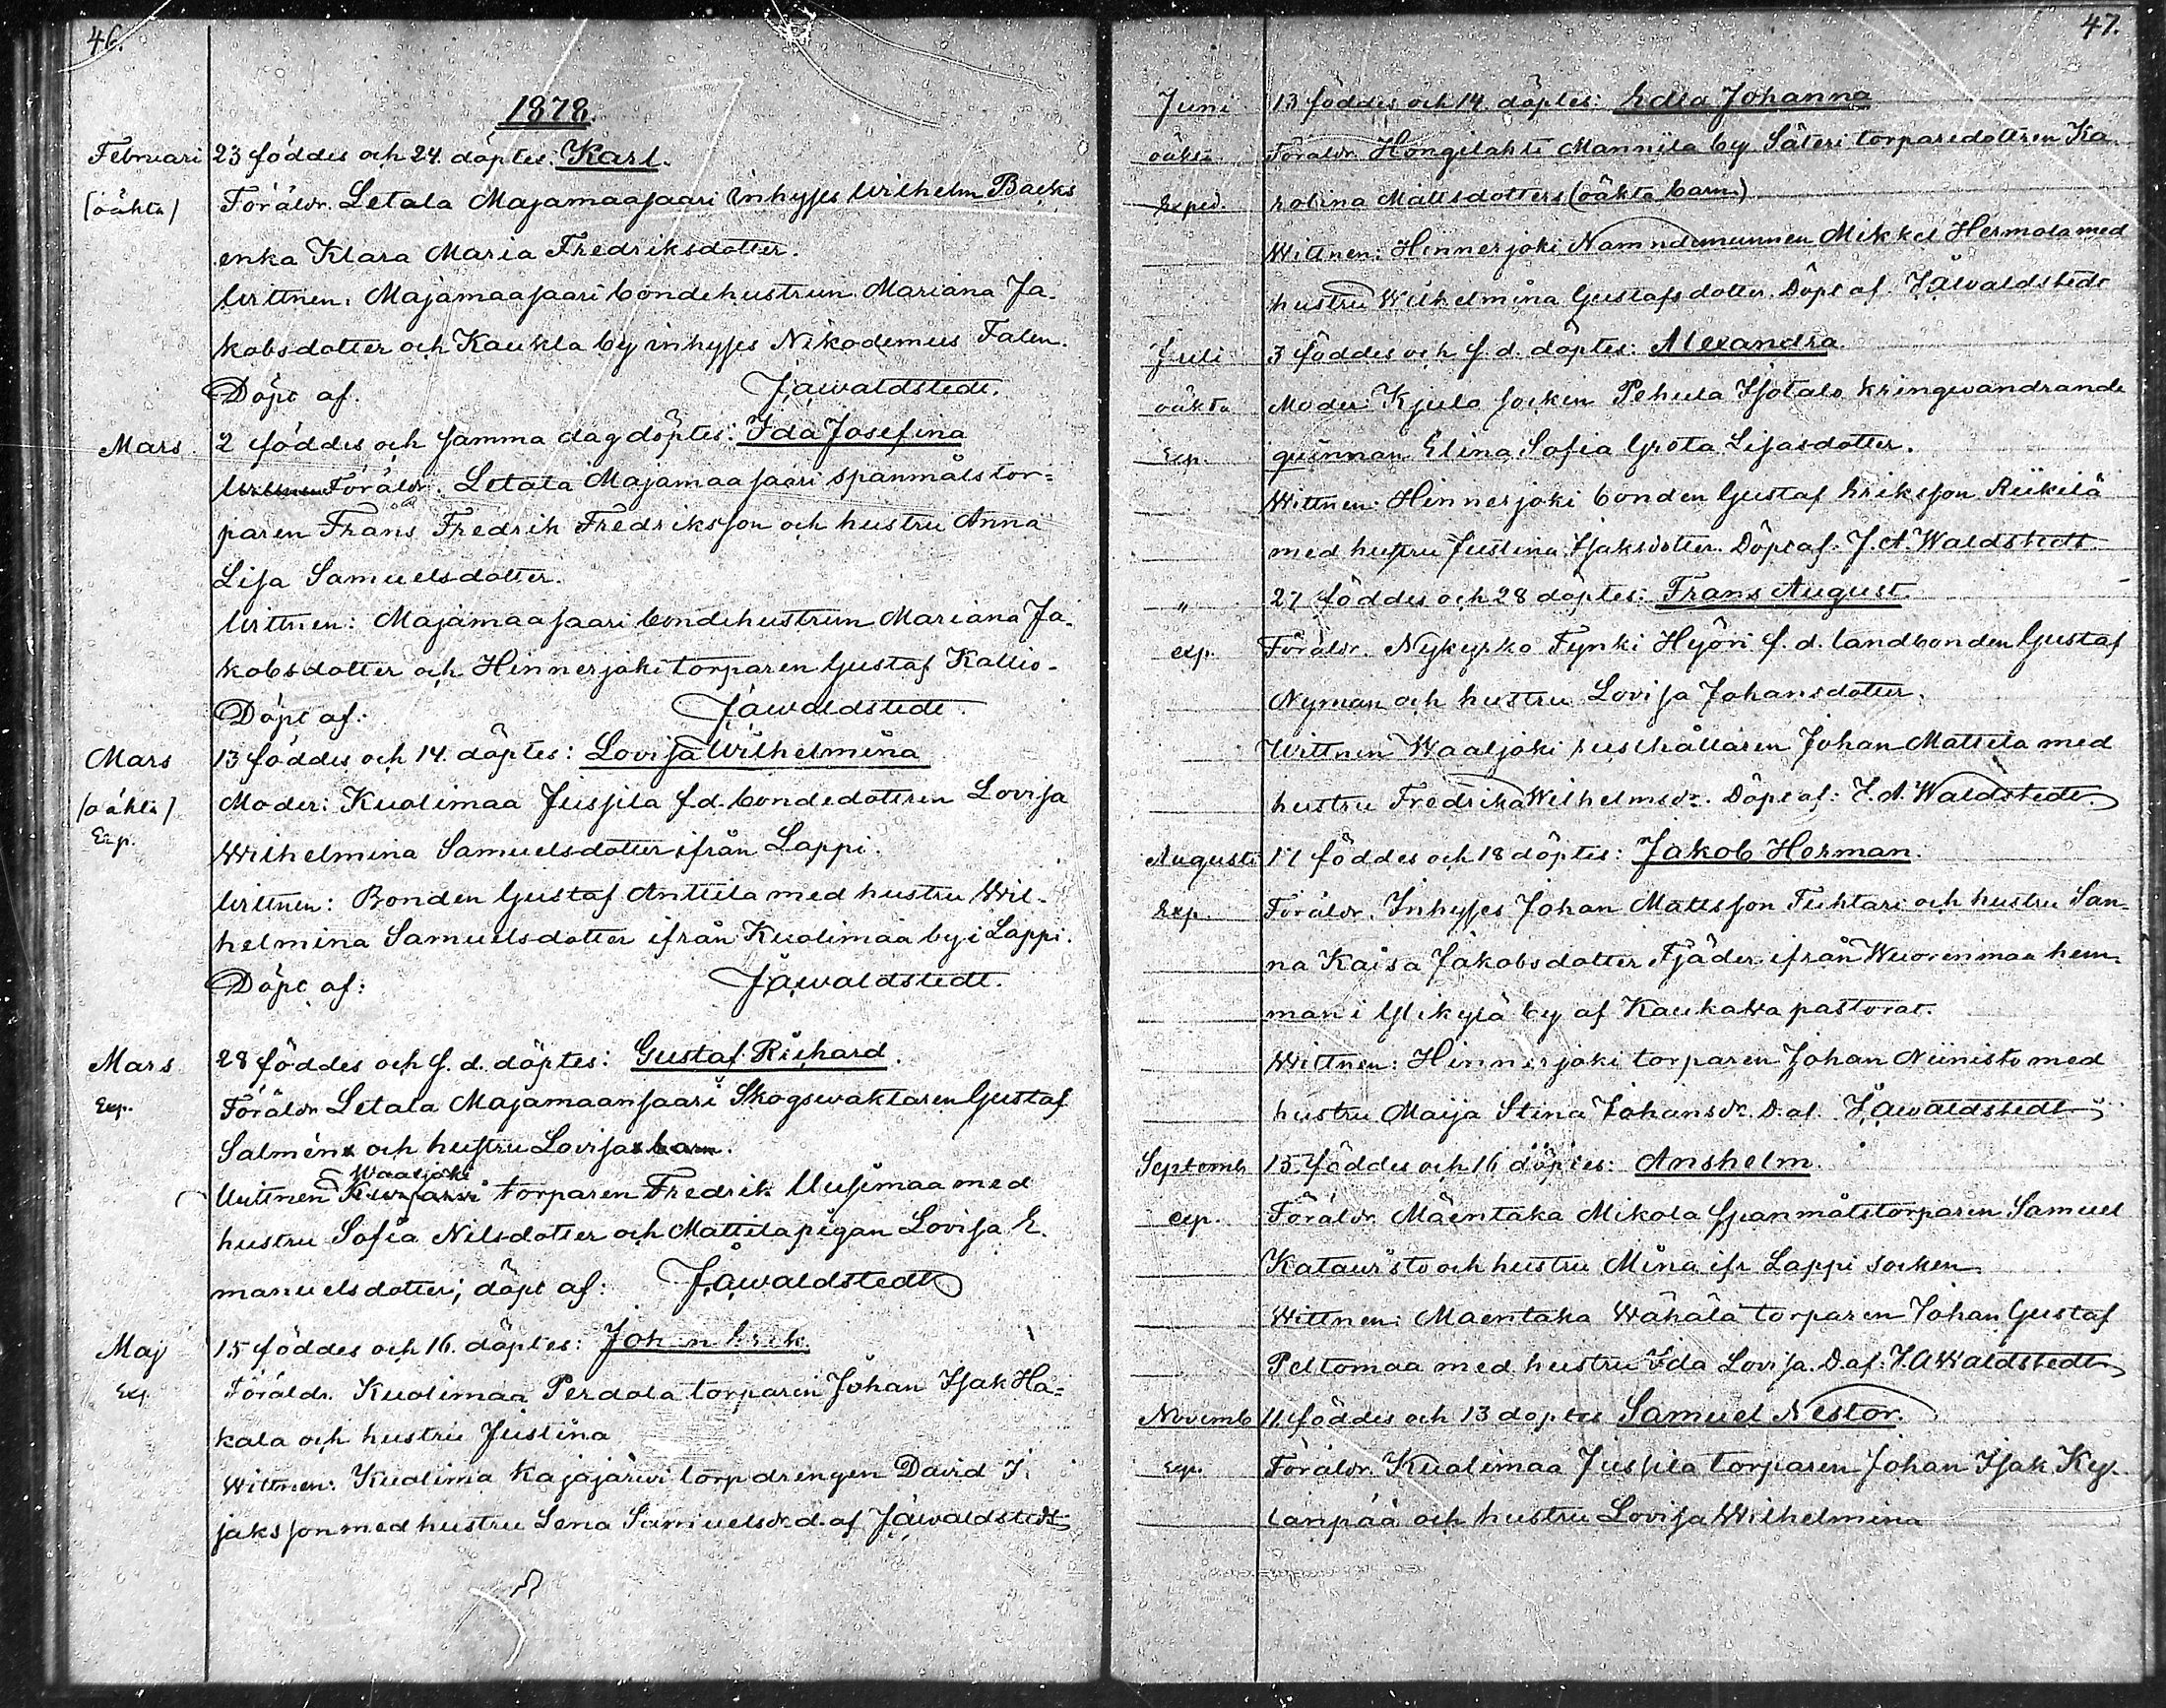 46.
1878.
Februari 23 föddes och 24. döptes: Karl.
(oäkta) Föräldr. Letala Majamaasaari inhyses Wilhelm Backs
enka Klara Maria Fredriksdotter.
Wittnen: Majamaasaari bondehustrun Mariana Ja-
kobsdotter och Kaukla by inhyses Nikodemus Falen.
Döpt af. J.A.Waldstedt.
Mars. 2 föddes och samma dag döptes: Ida Josefina
Föräldr. Letala Majamaasaari spanmålstor-
paren Frans Fredrik Fredriksson och hustru Anna
Lisa Samuelsdotter.
Wittnen: Majamaasaari bondehustrun Mariana Ja-
kobsdotter och Hinnerjoki torparen Gustaf Kallio-
Döpt af: J.A.Waldstedt.
Mars 13 föddes och 14. döptes: Lovisa Wilhelmina
(oäkta) Moder: Kuolimaa Jussila f.d. bondedottren Lovisa
Exp. Wilhelmina Samuelsdotter ifrån Lappi.
Wittnen: Bonden Gustaf Anttila med hustru Wil-
helmina Samuelsdotter ifrån Kuolimaa by i Lappi.
Döpt af: J.A.Waldstedt.
Mars 28 föddes och s. d. döptes: Gustaf Richard.
Exp. Föräldr Letala Majamaansaari Skogswaktaren Gustaf
Salmén och hustru Lovisa barn.
Waaljoki
Wittnen torparen Fredrik Uusimaa med
hustru Sofia Nilsdotter och Mattila pigan Lovisa E-
manuelsdotter; döpt af: J.A.Waldstedt
Maj 15 föddes och 16. döptes: Johan Erik.
Exp Föräldr. Kuolimaa Perdola torparen Johan Isak Ha-
kala och hustru Justina
Wittnen: Kuolima Kajajärwi torpdrengen David I-
saksson med hustru Lena Samuelsdr. d. af J.A.Waldstedt
47.
Juni 13 föddes och 14. döptes: Edla Johanna
oäkta Föräldr. Hongilahti Mannila by Säteri torparedottren Ka-
Exped. rolina Mattsdotters (oäkta barn)
Wittnen: Hinnerjoki Nämndemannen Mikkel Hermola med
hustru Wilhelmina Gustafsdotter. Döpt af J.A.Waldstedt
Juli 3 föddes och s. d. döptes: Alexandra
oäkta Moder: Kjulo socken Pehula Isotalo kringwandrande
Exp. quinnan Elina Sofia Greta Lisasdotter.
Wittnen: Hinnerjoki bonden Gustaf Eriksson Riikilä
med hustru Justina Isaksdotter. Döpt af: J.A.Waldstedt
" 27 föddes och 28 döptes: Frans August.
exp. Föräldr. Nykyrko Tynki Hyöri f.d. landbonden Gustaf
Nyman och hustru Lovisa Johansdotter.
Wittnen Waaljoki rusthållaren Johan Mattila med
hustru Fredrika Wilhelmsdr. Döpt af: J.A.Waldstedt.
Augusti 17 föddes och 18 döptes: Jakob Herman.
Exp. Föräldr. Inhyses Johan Mattsson Tuhtari och hustru San-
na Kaisa Jakobsdotter Fjäder ifrån Wuorenmaa hem-
man i Ylikylä by af Kaukawa pastorat.
Wittnen: Hinnerjoki torparen Johan Niinistö med
hustru Maija Stina Johansdr. D. af J.A.Waldstedt
Septemb 15 föddes och 16 döptes: Anshelm.
exp. Föräldr. Mäentaka Mikola spanmålstorparen Samuel
Katauristo och hustru Mina ifr Lappi socken
Wittnen: Mäentaka Wähälä torparen Johan Gustaf
Peltomaa med hustru Ida Lovisa. D. af: J.A.Waldstedt
Novemb 11. föddes och 13 döptes Samuel Nestor.
exp. Föräldr. Kuolimaa Jussila torparen Johan Isak Ky-
länpää och hustru Lovisa Wilhelmina